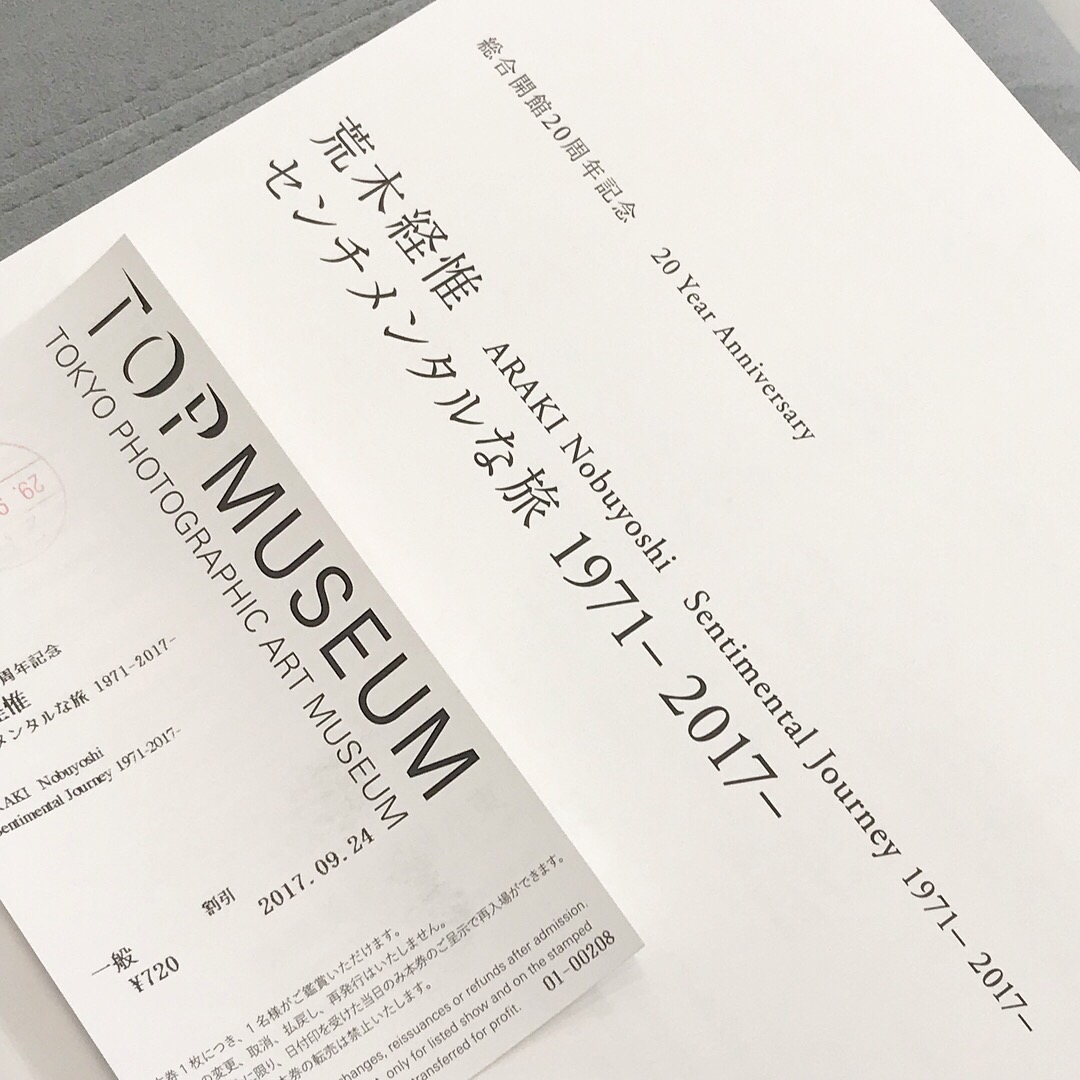 総合開館20周年記念 20 Year Anniversary
荒木経惟 ARAKI Nobuyoshi Sentimental Journey 1971– 2017–
センチメンタルな旅 1971– 2017–
TOP MUSEUM
TOKYO PHOTOGRAPHIC ART MUSEUM
29.
周年記念
惟
ンタルな旅 1971-2017-
AKI Nobuyoshi
entimental Journey 1971-2017-
割引 2017.09.24
一般
¥720
券1枚につき、1名様がご鑑賞いただけます。
の変更、取消、払戻し、再発行はいたしません。
に限り、日付印を受けた当日のみ本券のご呈示で再入場ができます。
本券の転売は禁止いたします。
changes, reissuances or refunds after admission.
only for listed show and on the stamped
transferred for profit.
01-00208